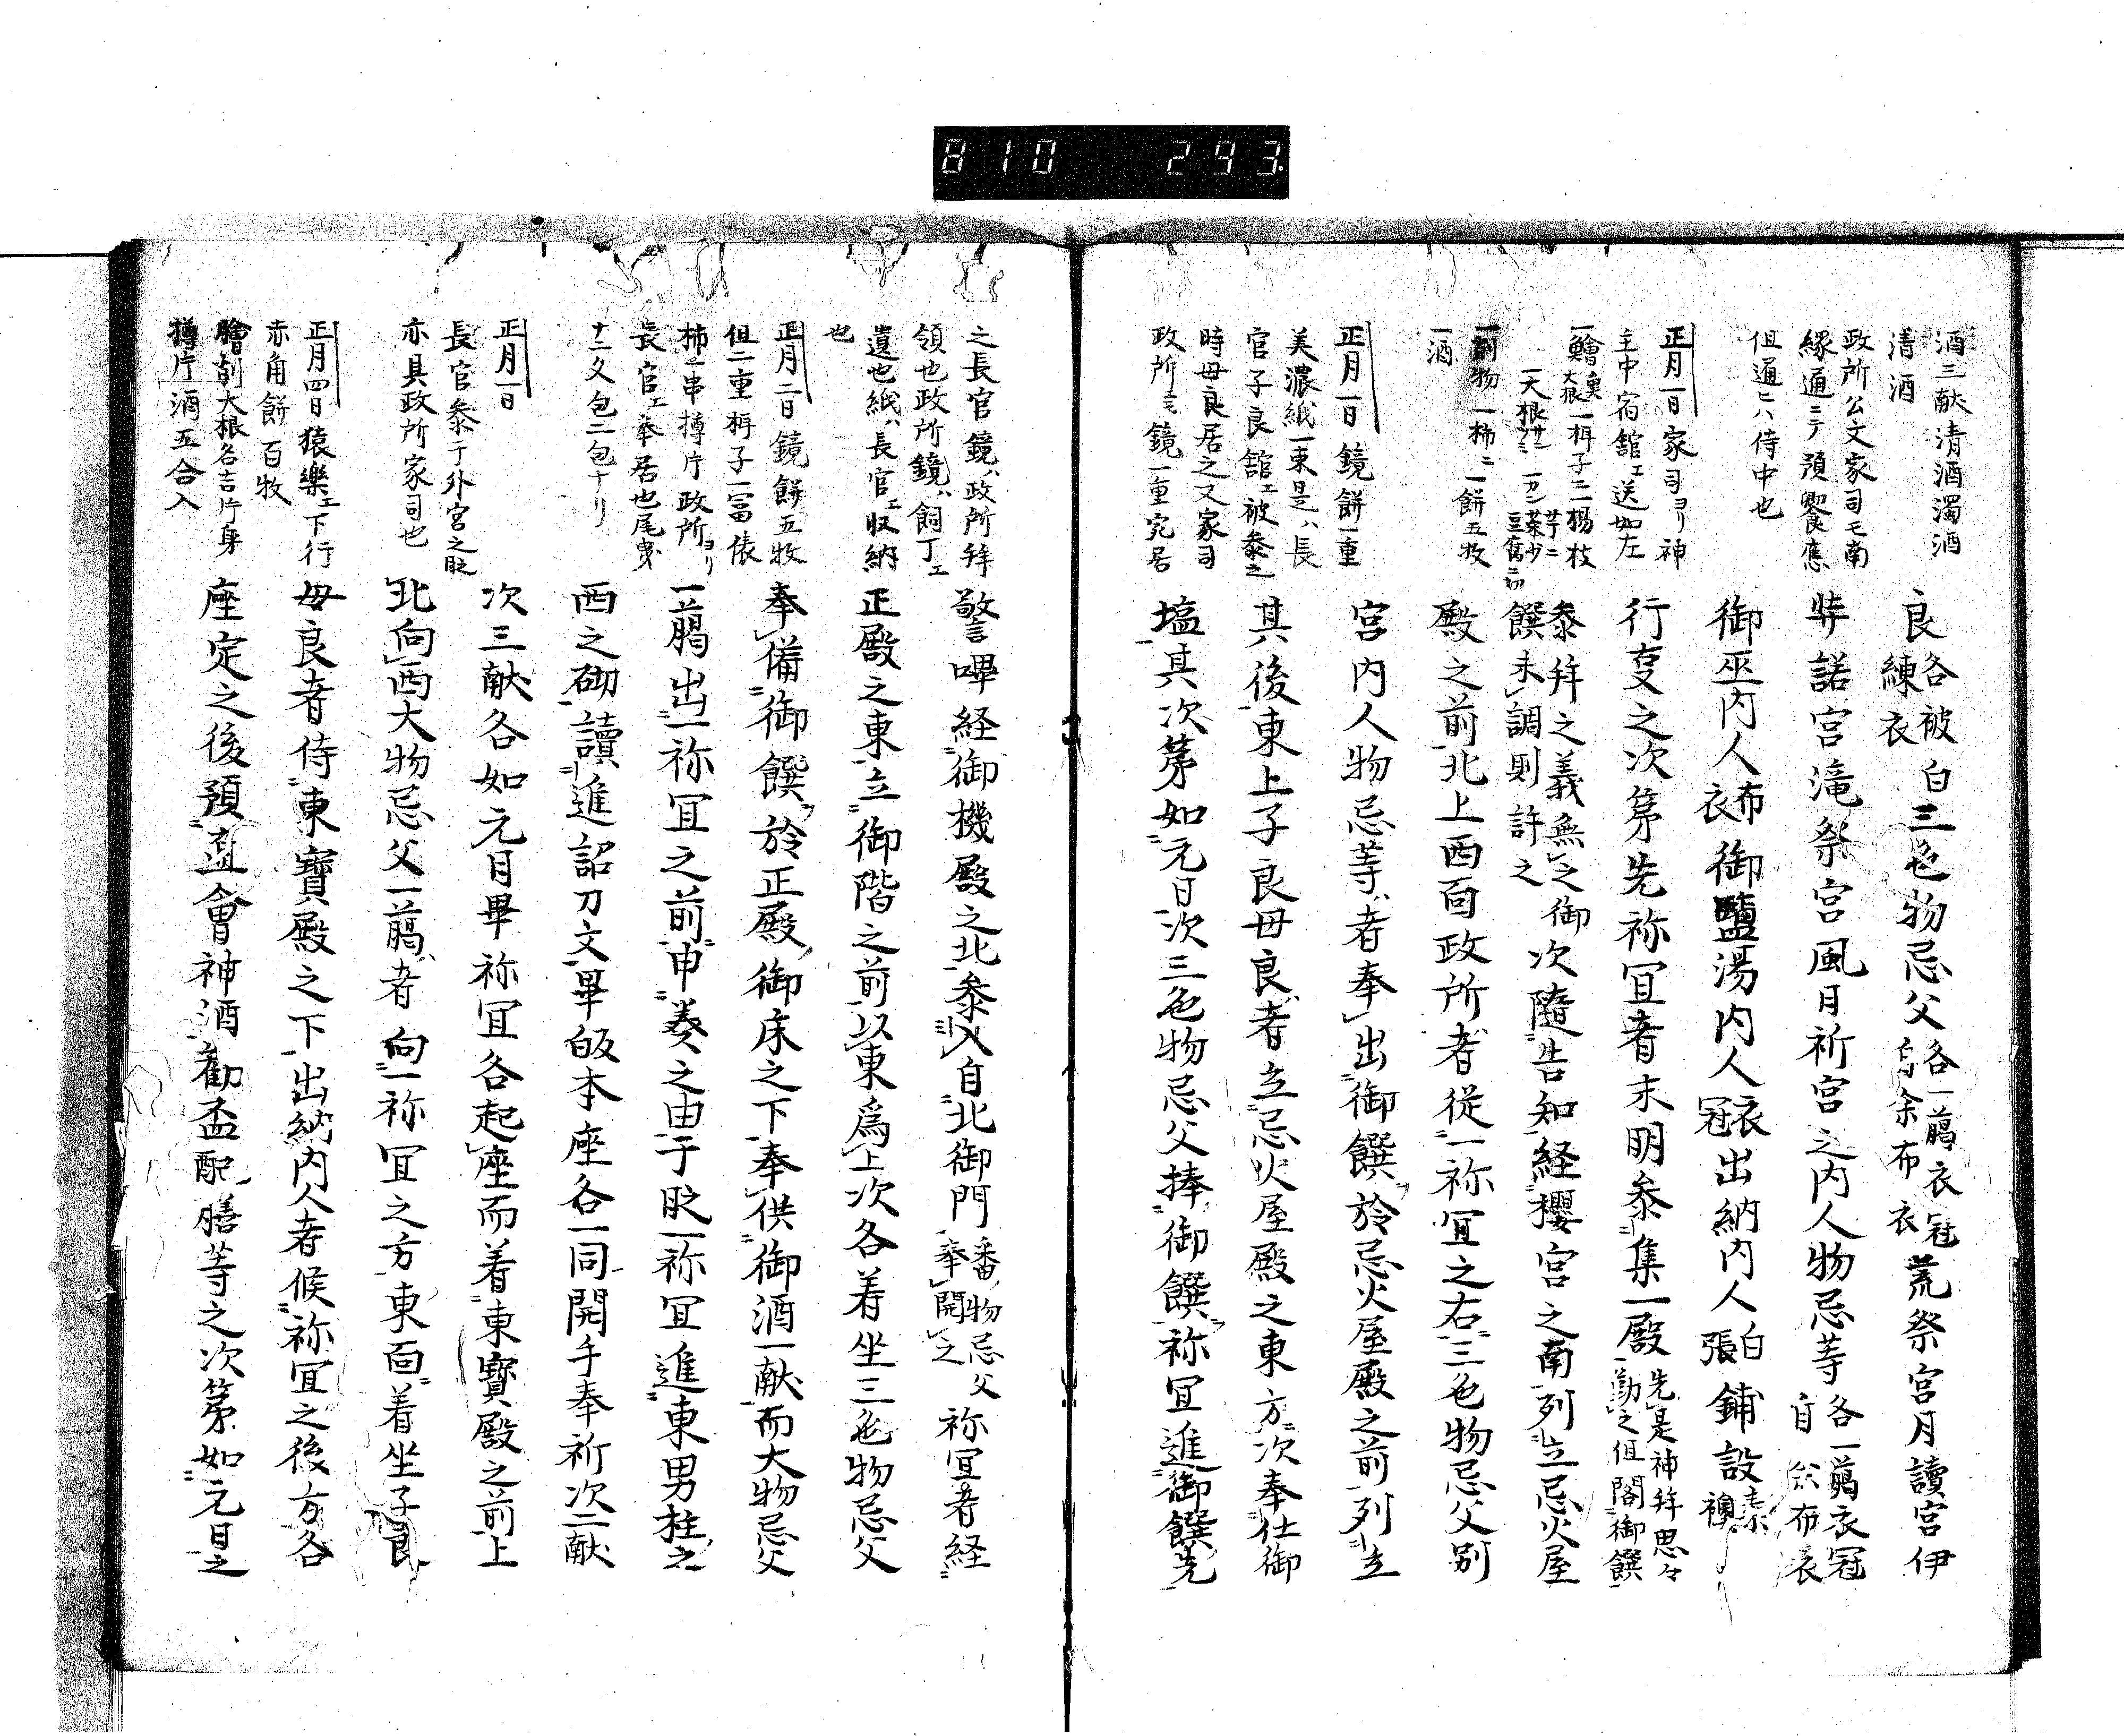 810 293
酒三献清酒濁酒
清酒
政所公文家司モ南
縁通ニテ預饗應
但通ニハ侍中也
正月一日家司ヨリ神
主中宿舘エ送如左
一鱠大根 一栮子二楊枝
一大根 芋二 菜少 豆腐二切
一削物 一柿二 一餅五牧
一酒
正月一日鏡餅一重
美濃紙一束是ハ長
官子良舘エ被参之
時母良居之又家司
政所モ鏡一重宛居
良各被白練衣三色物忌父各一﨟衣冠自余布衣荒祭宮月讀宮伊
弉諾宮滝祭宮風日祈宮之内人物忌等各一﨟衣冠自余布衣
御巫内人布衣御鹽湯内人衣冠出納内人白張鋪設素襖
行事之次第先祢宜者未明参集一殿先是神拜思々勤之但閣御饌
参拜之義無之御饌未調則許之次随告知経櫻宮之南列立忌火屋
殿之前北上西面政所者従一祢宜之右三色物忌父別
宮内人物忌等者奉出御饌於忌火屋殿之前列立
其後東上子良母良者立忌火屋殿之東方次奉仕御
塩其次第如元日次三色物忌父捧御饌祢宜進御饌先
之長官鏡ハ政所拜
領也政所鏡ハ飼丁エ
遣也紙ハ長官エ収納
也
正月二日鏡餅五牧
但二重栮子一冨俵
柿一串搏片政所ヨリ
長官エ奉居也尾曳
十二文包二包ナリ
正月一日
長官参于外宮之時
亦具政所家司也
正月四日猿樂エ下行
赤角餅百牧
鱠削大根名吉片身
搏片酒五合入
警蹕経御機殿之北参入自北御門番物忌父奉開之祢宜者経
正殿之東立御階之前以東爲上次各着坐三色物忌父
奉備御饌於正殿御床之下奉供御酒一献而大物忌父
一﨟出一祢宜之前申奏之由于時一祢宜進東男柱之
西之砌讀進詔刀文畢皈本座各一同開手奉祈次二献
次三献各如元日畢祢宜各起座而着東寳殿之前上
北向西大物忌父一﨟者向一祢宜之方東面着坐子良
母良者侍東寳殿之下出納内人者候祢宜之後方各
座定之後預直會神酒勸盃配膳等之次第如元日之